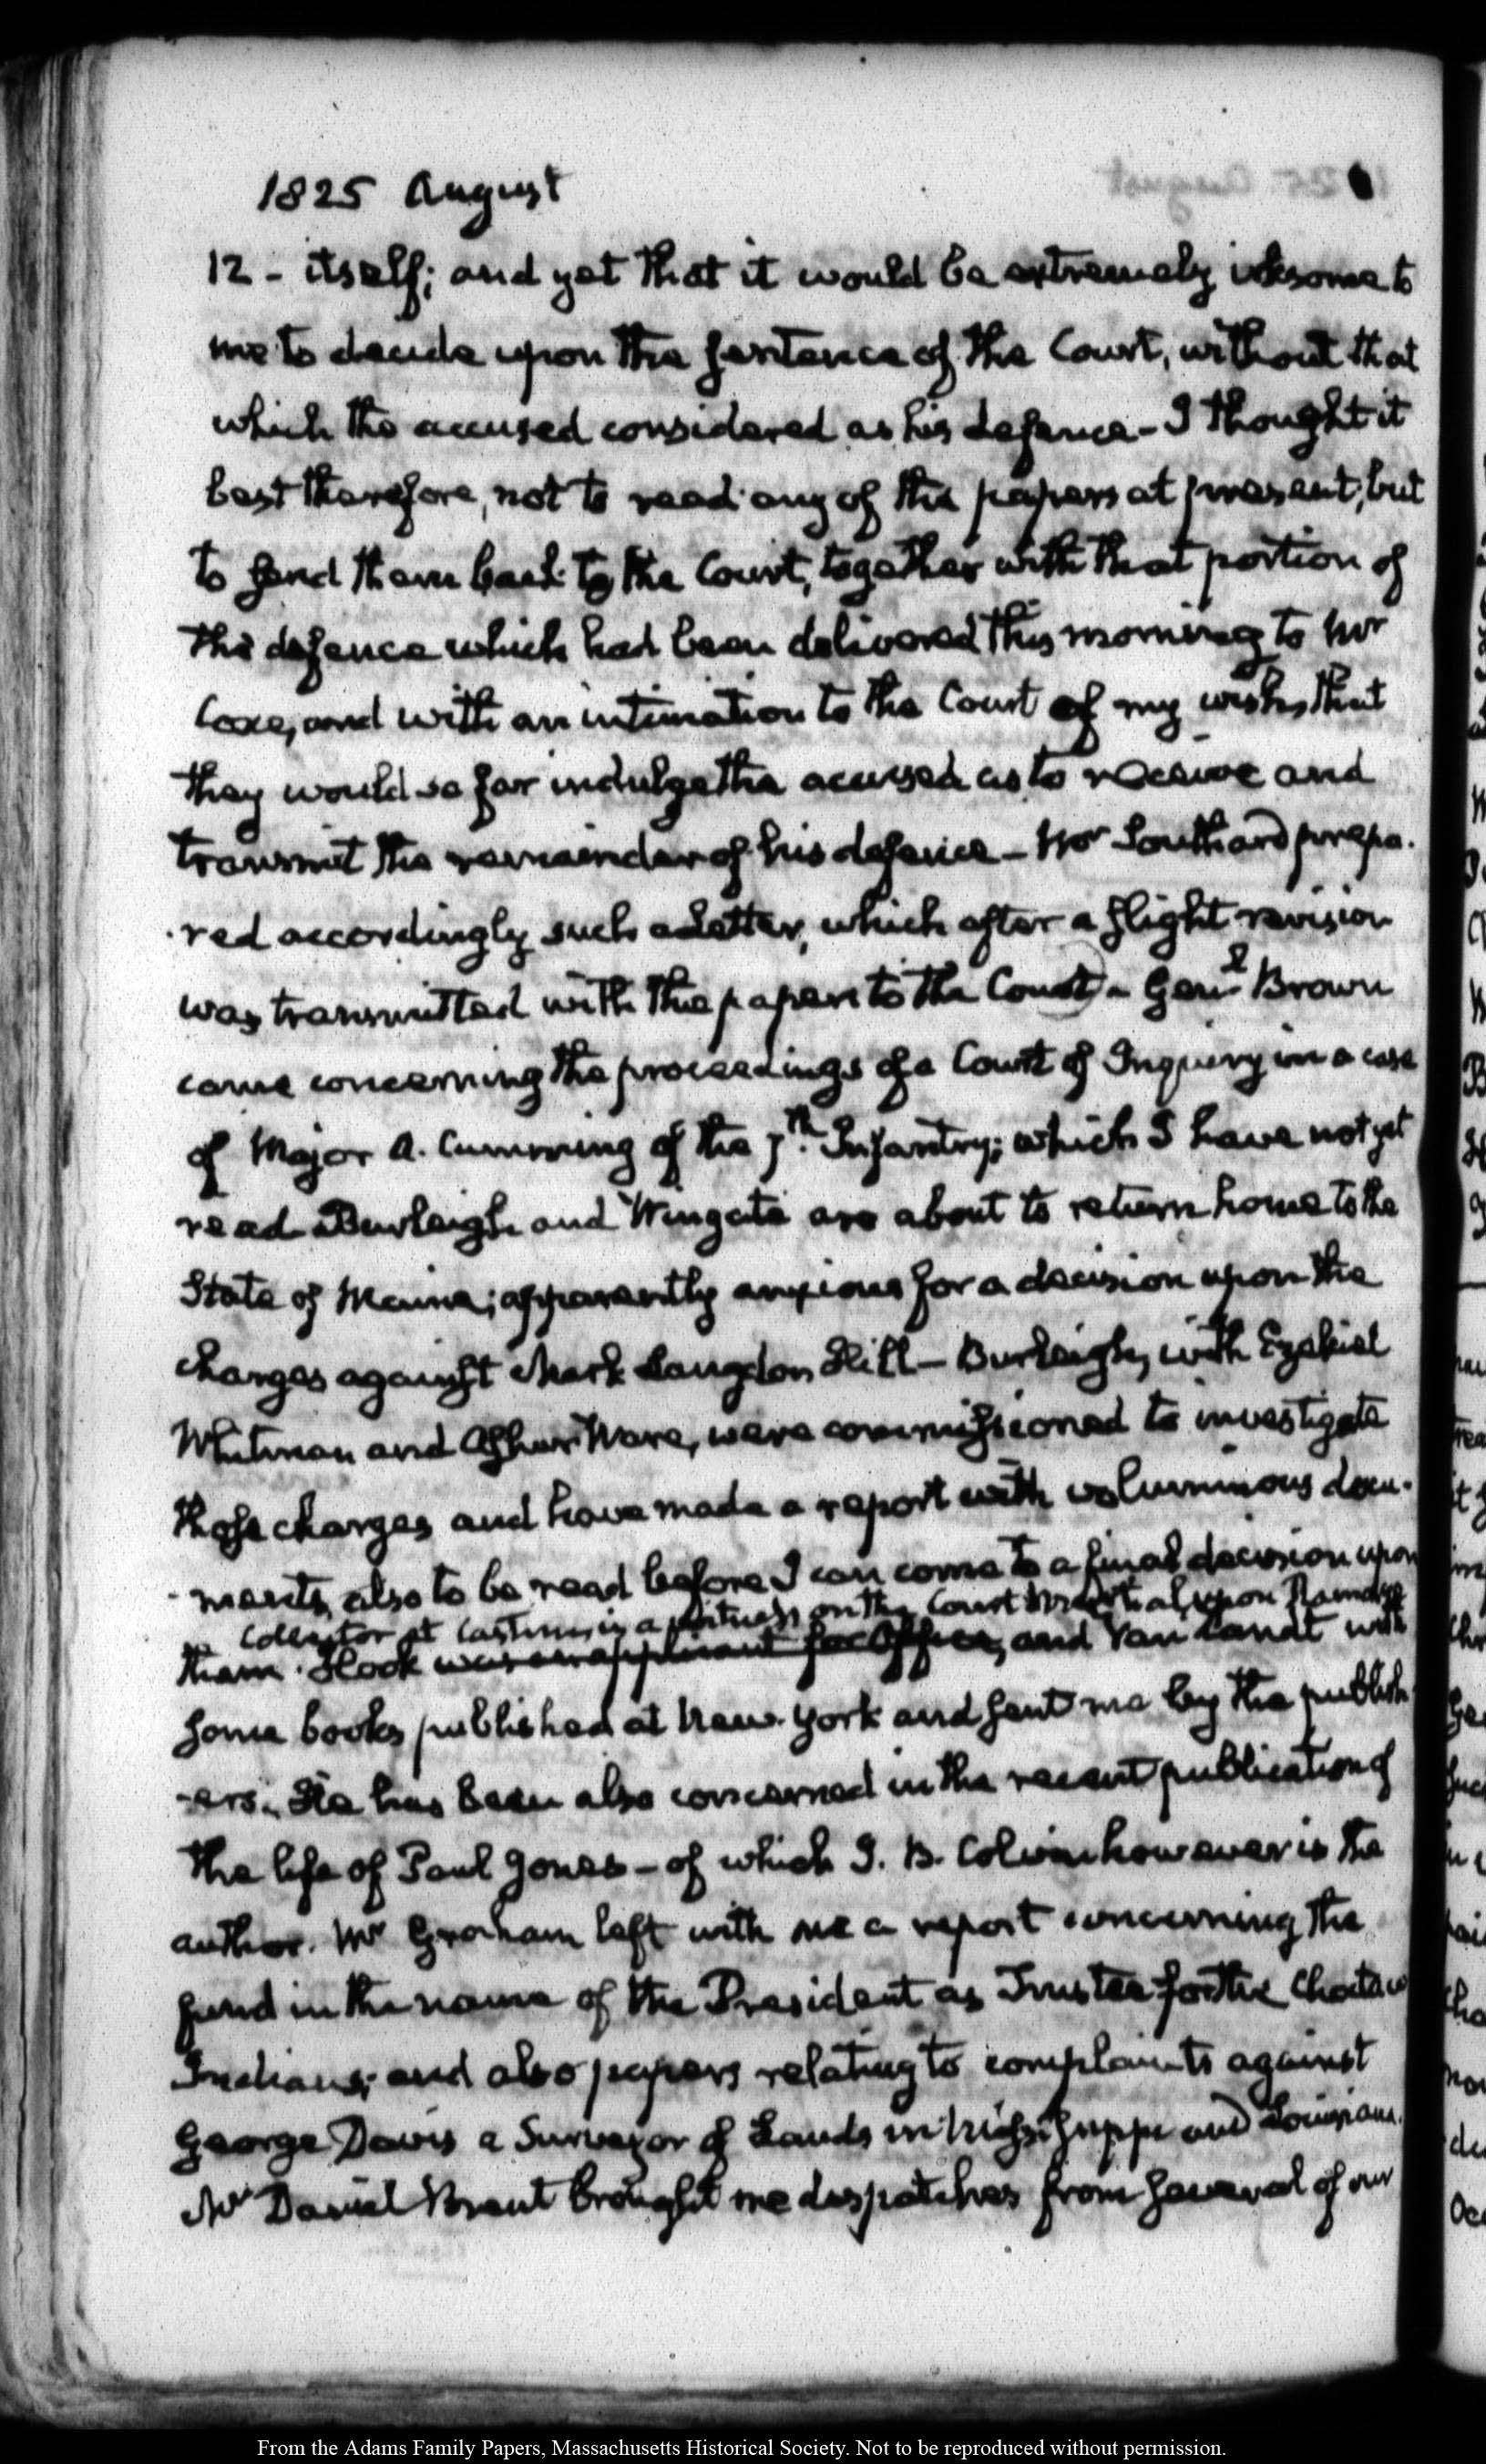 1825 August
12 - itself; and yet that it would be extremely irksome to
me to decide upon the sentence of the Court, without that
which the accused considered as his defence - I thought it
best therefore, not to read any of the papers at present, but
to send them back to the Court, together with that portion of
the defence which had been delivered this morning to Mr
Coxe, and with an intimation to the Court of my wish, that
they would so far indulge the accused as to receive and
transmit the remainder of his defence - Mr Southard prepa-
-red accordingly such a Letter, which after a slight revision
was transmitted with the papers to the Court - Genl Brown
came concerning the proceedings of a Court of Inquiry in a case
of Major A. Cumming of the 7th. Infantry; which I have not yet
read - Burleigh and Wingate are about to return home to the
State of Maine; apparently anxious for a decision upon the
charges against Mark Langdon Hill - Burleigh, with Ezekiel
Whitman and Ashur Ware, were commissioned to investigate
those charges and have made a report with voluminous docu-
-ments also to be read before I can come to a final decision upon
Collector at Castine, is a witness on the Court Martial, upon Ramage
them. Hook was an applicant for Office, and Van Sandt with
some books published at New-York and sent me by the publish
-ers. He has been also concerned in the recent publication of
the life of Paul Jones - of which J. B. Colvin however is the
author. Mr Graham left with me a report concerning the
fund in the name of the President as Trustee for the Choctaw
Indians; and also papers relating to complaints against
George Davis a Surveyor of Lands in Mississippi and Louisiana.
Mr Daniel Brent brought me despatches from several of our
From the Adams Family Papers, Massachusetts Historical Society. Not to be reproduced without permission.